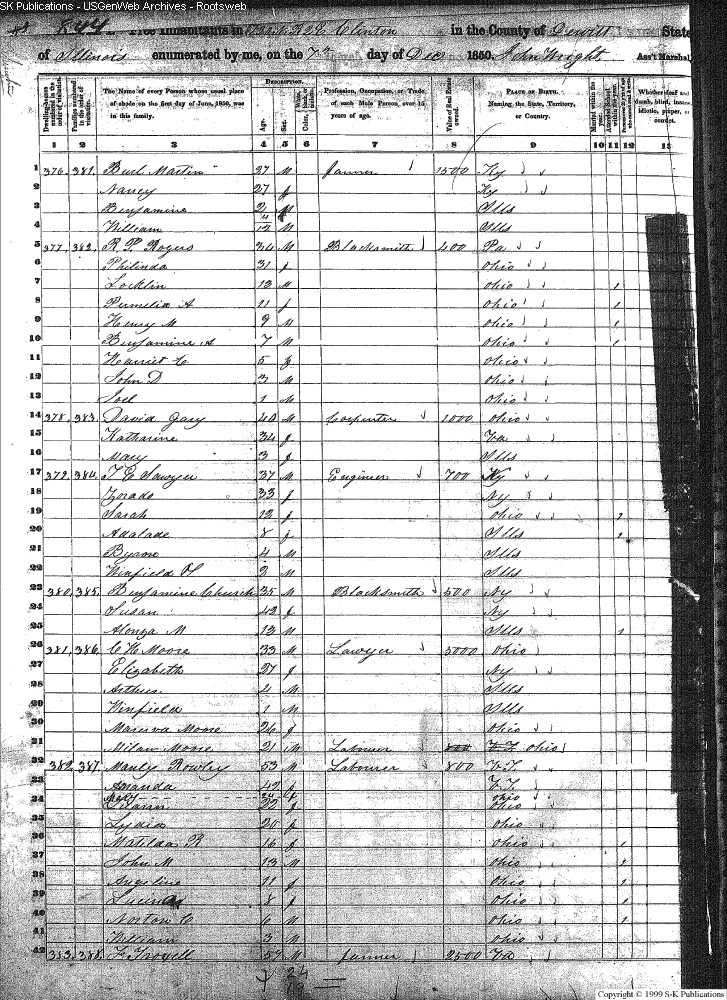 SK Publications - USGenWeb Archives - Rootsweb
844 Free Inhabitants in Clinton in the County of Dewitt State
of Illinois enumerated by me, on the 7th day of Dec 1850. John Wright Ass't Marshal.
Dwelling-houses numbered in the order of visitation.
Families numbered in the order of visitation.
The Name of every Person whose usual place of abode on the first day of June, 1850, was in this family.
Description.
Age.
Sex.
Color, White, black, or mulatto.
Profession, Occupation, or Trade of each Male Person, over 15 years of age.
Value of Real Estate owned.
Place of Birth. Naming the State, Territory, or Country.
Married within the year.
Attended School within the year.
Whether deaf and dumb, blind, insane, idiotic, pauper, or convict.
1 2 3 4 5 6 7 8 9 10 11 12 13
1 376 381 Burl Martin 27 M farmer 1500 Ky
2 Nancy 27 f Ky
3 Benjamine 2 M Ills
4 William 4/12 M Ills
5 377 382 R. P. Rogers 34 M Blacksmith 400 Pa
6 Philinda 31 f Ohio
7 Locklin 13 M Ohio 1
8 Permelia A 11 f Ohio 1
9 Henry M 9 M Ohio 1
10 Benjamine A 7 M Ohio 1
11 Harriet C 5 f Ohio
12 John D 3 M Ohio
13 Joel 1 M Ohio
14 378 383 David Gary 40 M Carpenter 1000 Ohio
15 Katharine 34 f Va
16 Mary 3 f Ills
17 379 384 T E Sawyer 37 M Engineer 700 Ky
18 Zorado 33 f Ny
19 Sarah 12 f Ohio 1
20 Adalade 8 f Ills 1
21 Byron 4 M Ills
22 Winfield 2 M Ills
23 380 385 Benjamine Church 35 M Blacksmith 500 Ny
24 Susan 42 f Ny
25 Alonza M 13 M Ills 1
26 381 386 C H Moore 33 M Lawyer 5000 Ohio
27 Elizabeth 27 f Ny
28 Arthur 4 M Ills
29 Winfield 1 M Ills
30 Manerva Moore 26 f Ohio
31 Milan Moore 21 M Labourer 800 V.T. Ohio
32 382 387 Manly Rowley 53 M Labourer 800 V.T.
33 Amanda 42 f V.T.
34 Mary 24 f Ohio
22 f Ohio
35 Lydia 20 f Ohio
36 Matilda R 16 f Ohio 1
37 John M 13 M Ohio 1
38 Angeline 11 f Ohio 1
39 Lucinda 8 f Ohio 1
40 Norton C 6 M Ohio 1
41 William 3 M Ohio
42 383 388 F. Trowell 57 M farmer 2500 Va
24
Copyright © 1999 S-K Publications